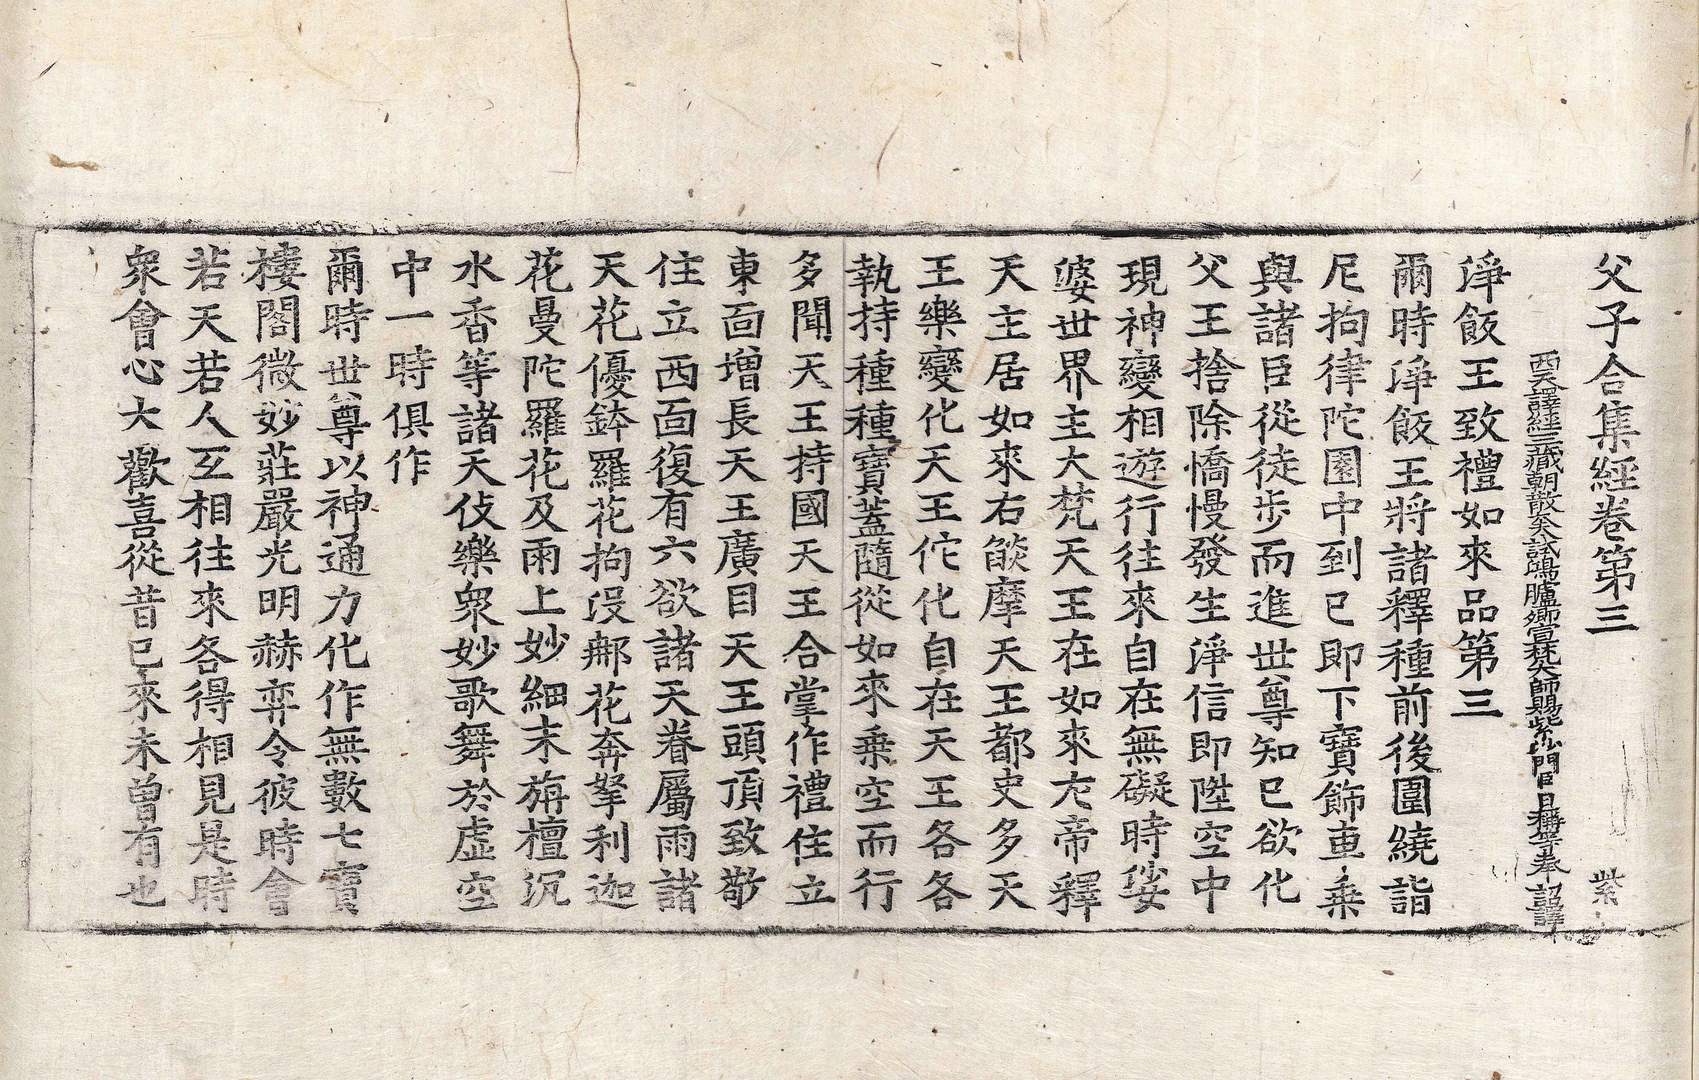 父子合集經卷第三 紫
西天譯經三藏朝散大夫試鴻臚卿宣梵大師賜紫沙門臣日稱等奉 詔譯
淨飯王致禮如來品第三
爾時淨飯王將諸釋種前後圍繞詣
尼拘律陀園中到已即下寶飾車乘
與諸臣從徒步而進世尊知已欲化
父王捨除憍慢發生淨信即陞空中
現神變相遊行往來自在無礙時娑
婆世界主大梵天王在如來左帝釋
天主居如來右燄摩天王都史多天
王樂變化天王佗化自在天王各各
執持種種寶蓋隨從如來乘空而行
多聞天王持國天王合掌作禮住立
東面增長天王廣目天王頭頂致敬
住立西面復有六欲諸天眷屬雨諸
天花優鉢羅花拘沒那花奔拏利迦
花曼陀羅花及雨上妙細末旃檀沉
水香等諸天伎樂衆妙歌舞於虛空
中一時俱作
爾時世尊以神通力化作無數七寶
樓閣微妙莊嚴光明赫弈令彼時會
若天若人互相往來各得相見是時
衆會心大歡喜從昔已來未曾有也